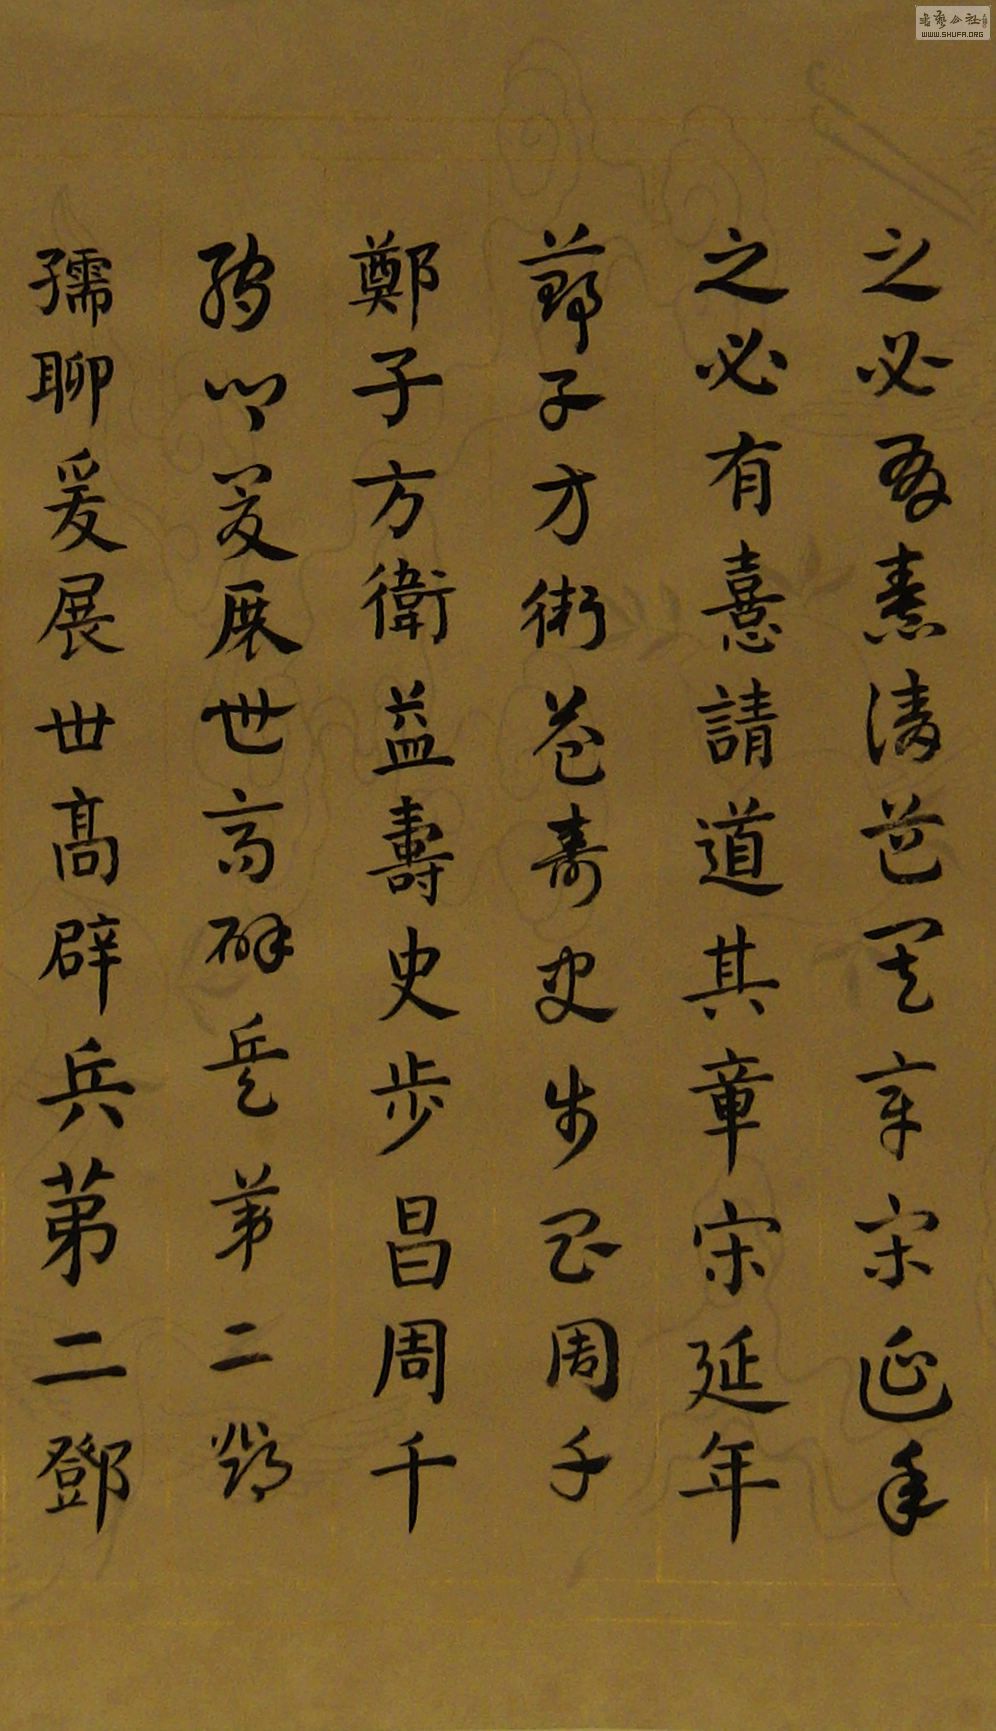 之必有憙請道其章宋延年
之必有憙請道其章宋延年
鄭子方衛益壽史步昌周千
鄭子方衛益壽史步昌周千
孺聊爰展世高辟兵第二鄧
孺聊爰展世高辟兵第二鄧
WWW.SHUFA.ORG